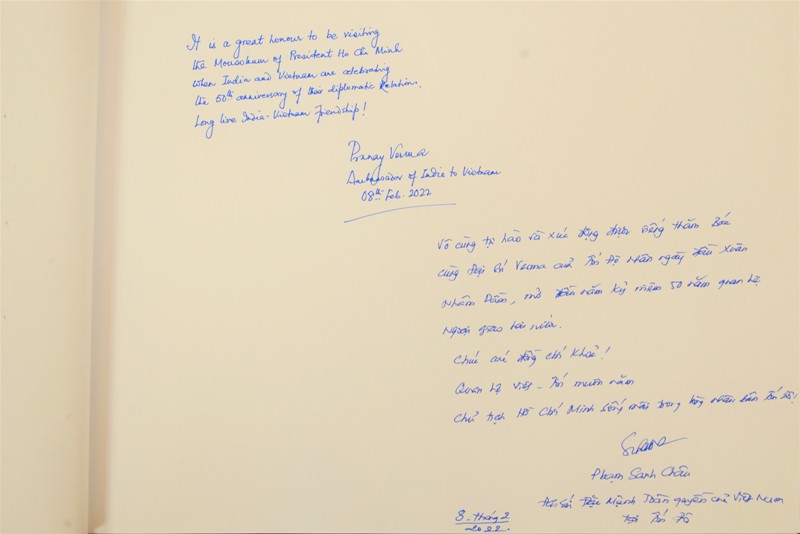 It is a great honour to be visiting
the Mousoleum of President Ho Chi Minh
when India and Vietnam are celebrating
the 50th anniversary of their diplomatic Relations.
Long live India-Vietnam Friendship!
Pranay Verma
Ambassador of India to Vietnam
08th Feb. 2022
Vô cùng tự hào và xúc động được viếng thăm Bác
cùng Đại sứ Verma của Ấn Độ nhân ngày đầu xuân
Nhâm Dần, mở đầu năm kỷ niệm 50 năm quan hệ
Ngoại giao hai nước.
Chúc các đồng chí khoẻ!
Quan hệ Việt - Ấn muôn năm
Chủ tịch Hồ Chí Minh sống mãi trong lòng nhân dân Ấn Độ!
Phạm Sanh Châu
Đại sứ Đặc Mệnh Toàn quyền của Việt Nam
tại Ấn Độ
8 - tháng 2
2022.